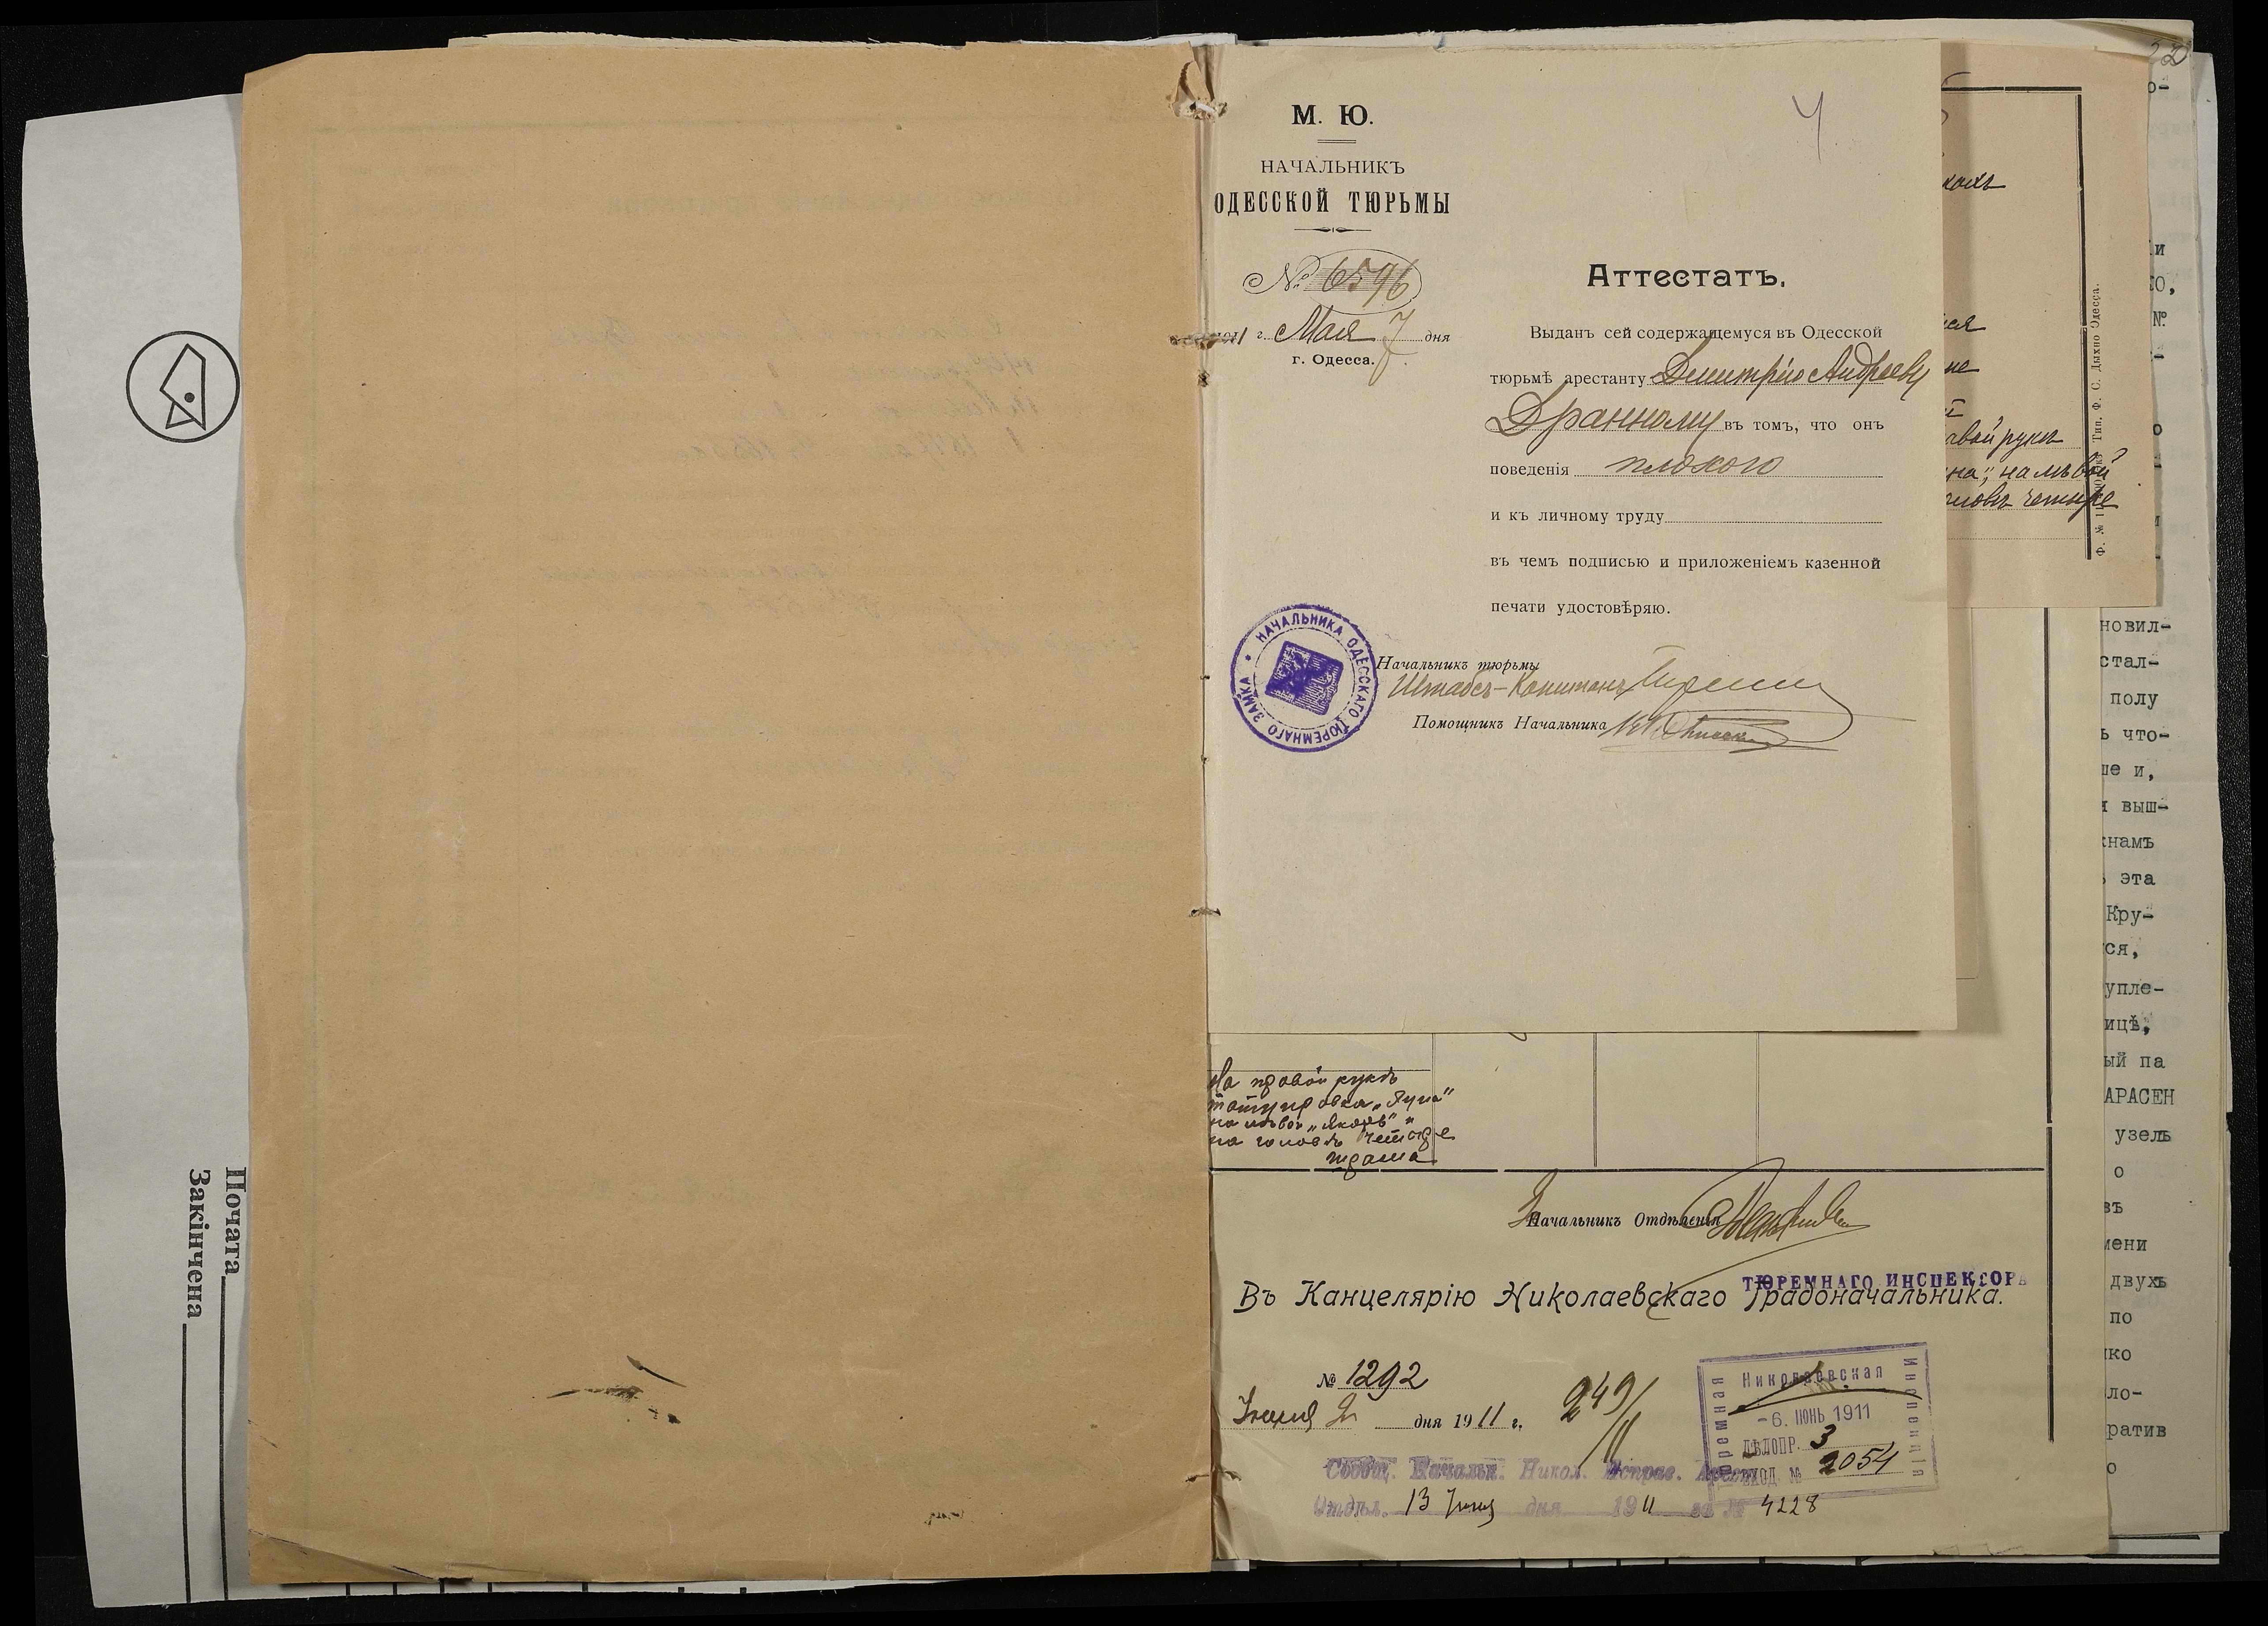 Почата
Закінчена
М. Ю.
НАЧАЛЬНИКЪ
ОДЕССКОЙ ТЮРЬМЫ
№ 6596
г. Мая 7 дня
г. Одесса.
4
Аттестатъ.
Выданъ сей содержащемуся въ Одесской
тюрьмѣ арестанту Дмитрію Андрееву
Дранному въ томъ, что онъ
поведенія плохого
и къ личному труду
въ чемъ подписью и приложеніемъ казенной
печати удостовѣряю.
НАЧАЛЬНИКА ОДЕССКАГО ТЮРЕМНАГО ЗАМКА *
Начальникъ тюрьмы
Штабсъ-Капитанъ
Помощникъ Начальника
авой рукѣ
на", на лѣвой
четыре
Тип. Ф. С. Дыхно Одесса.
и
ТО,
№
новил-
стал-
полу
ь что-
ше и,
выш-
кнамъ
эта
Кру-
ся,
упле-
ицѣ,
ый па
АРАСЕН
узелъ
о
въ
мени
двухъ
по
ико
ло-
ратив
о
На правой рукѣ
татуировка „Луна"
на лѣвой „Якорь"
на головѣ четыре
шрама
Начальникъ Отдѣленія
ТЮРЕМНАГО ИНСПЕКТОРА
Въ Канцелярію Николаевскаго Градоначальника.
№ 1292
Іюня 2 дня 1911 г.
249/11
Николаевская
Тюремная
Инспекція
-6. ІЮНЬ 1911
ДѢЛОПР. 3
ВХОД. № 2054
Сообщ. Начальн. Никол. Исправ. Арест.
Отдѣл. 13 Іюня дня 1911 за № 4228